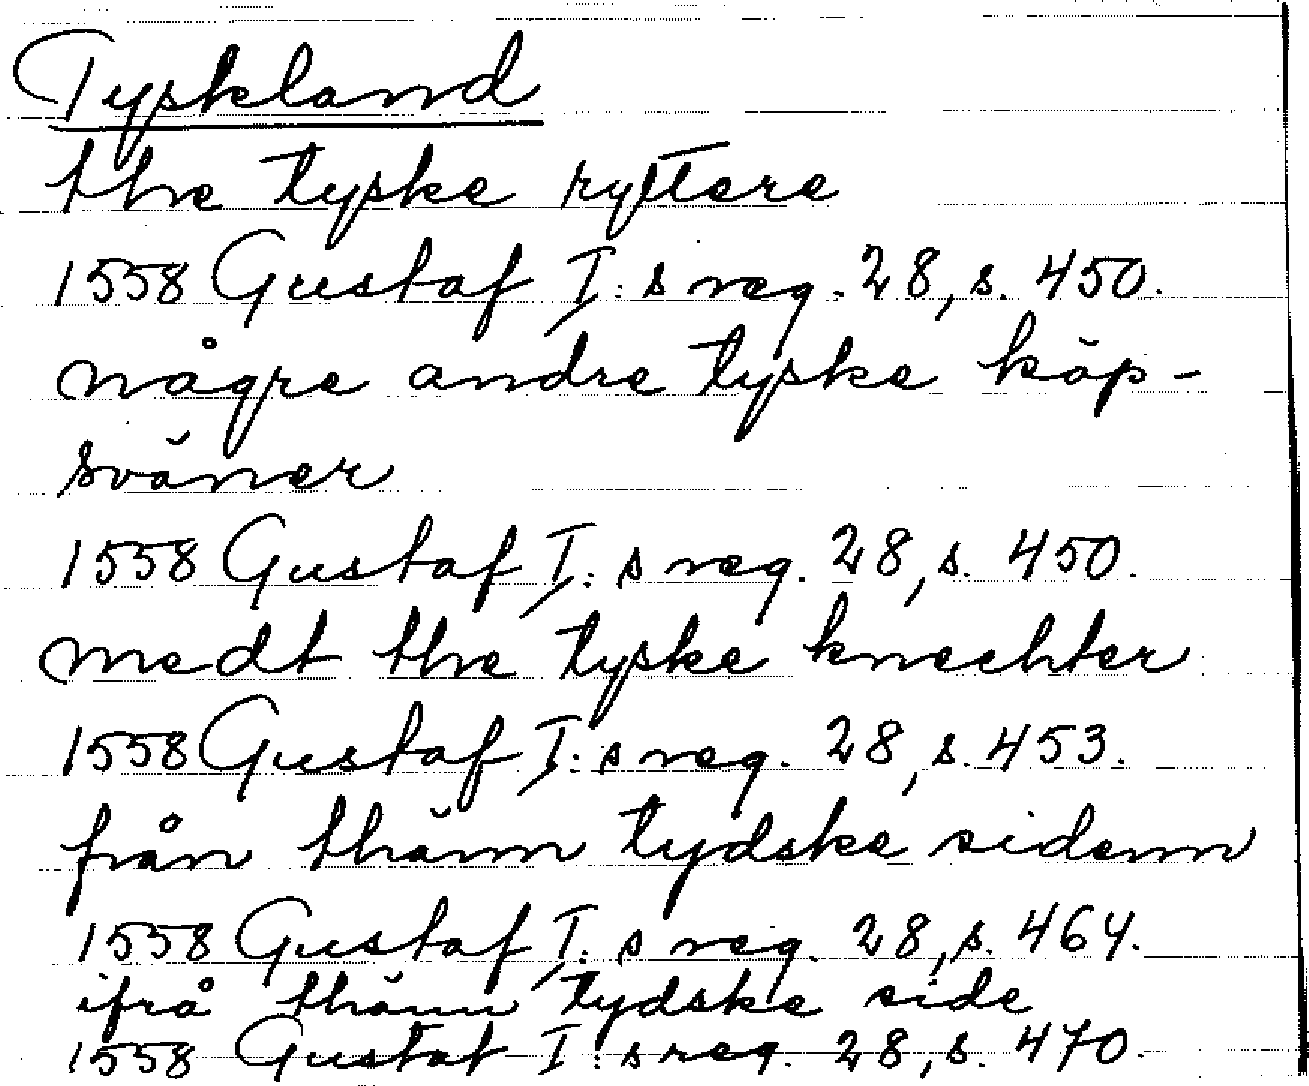 Tyskland
the tyske ryttere
1558 Gustaf I: s reg. 28, s. 450.
någre andre tyske köp-
sväner
1558 Gustaf I: s reg. 28, s. 450.
medt the tyske knechter
1558 Gustaf I: s reg. 28, s. 453.
från thänn tydske sidenn
1558 Gustaf I: s reg. 28, s. 464.
ifrå thänn tydske side
1558 Gustaf I: s reg. 28, s. 470.